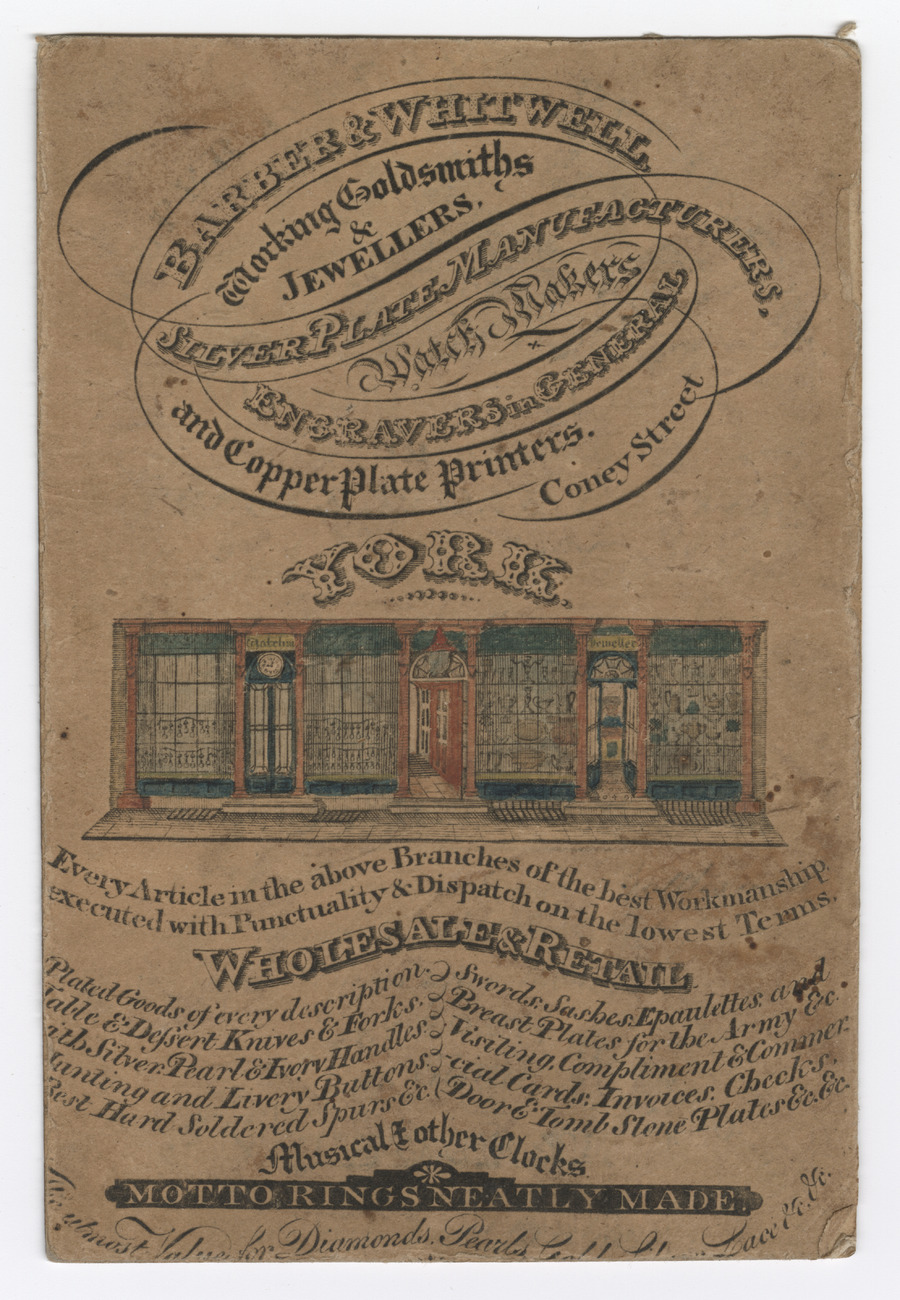 BARBER & WHITWELL,
Working Goldsmiths
&
JEWELLERS,
SILVER PLATE MANUFACTURERS,
Watch Makers
ENGRAVERS in GENERAL
and Copper Plate Printers.
Coney Street
YORK.
Jeweller
Every Article in the above Branches of the best Workmanship
executed with Punctuality & Dispatch on the lowest Terms.
WHOLESALE & RETAIL
Plated Goods of every description.
able & Dessert Knives & Forks.
ith Silver, Pearl & Ivory Handles
unting and Livery Buttons.
Best Hard Soldered Spurs &c.
Swords, Sashes, Epaulettes, and
Breast Plates for the Army &c.
Visiting, Compliment & Commer-
cial Cards; Invoices, Checks,
Door & Tomb Stone Plates &c. &c.
Musical & other Clocks
MOTTO RINGS NEATLY MADE.
utmost Value for Diamonds, Pearls, Gold, Lace &c. &c.